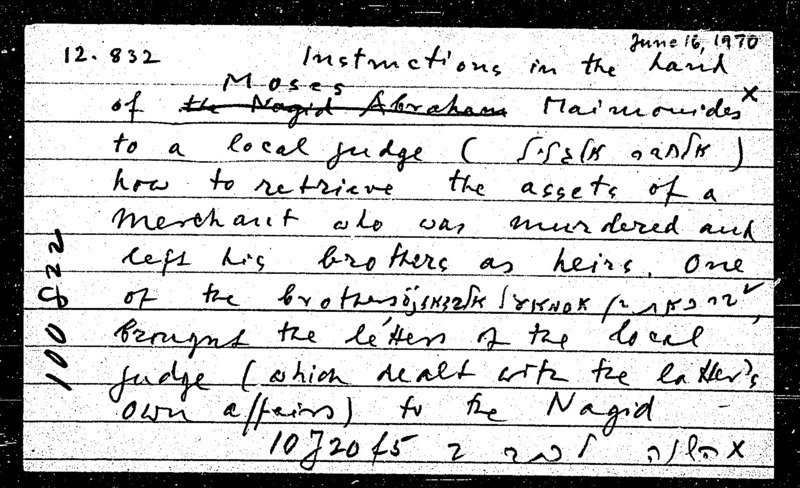 June 16, 1970
12. 832 Instructions in the hand
Moses
of the Nagid Abraham Maimonides x
to a local judge (
how to retrieve the assets of a
merchant who was murdered and
left his brothers as heirs. One
of the brothers
brought the letters of the local
judge (which dealt with the latter's
own affairs) to the Nagid
10 J 20 f 5
100822